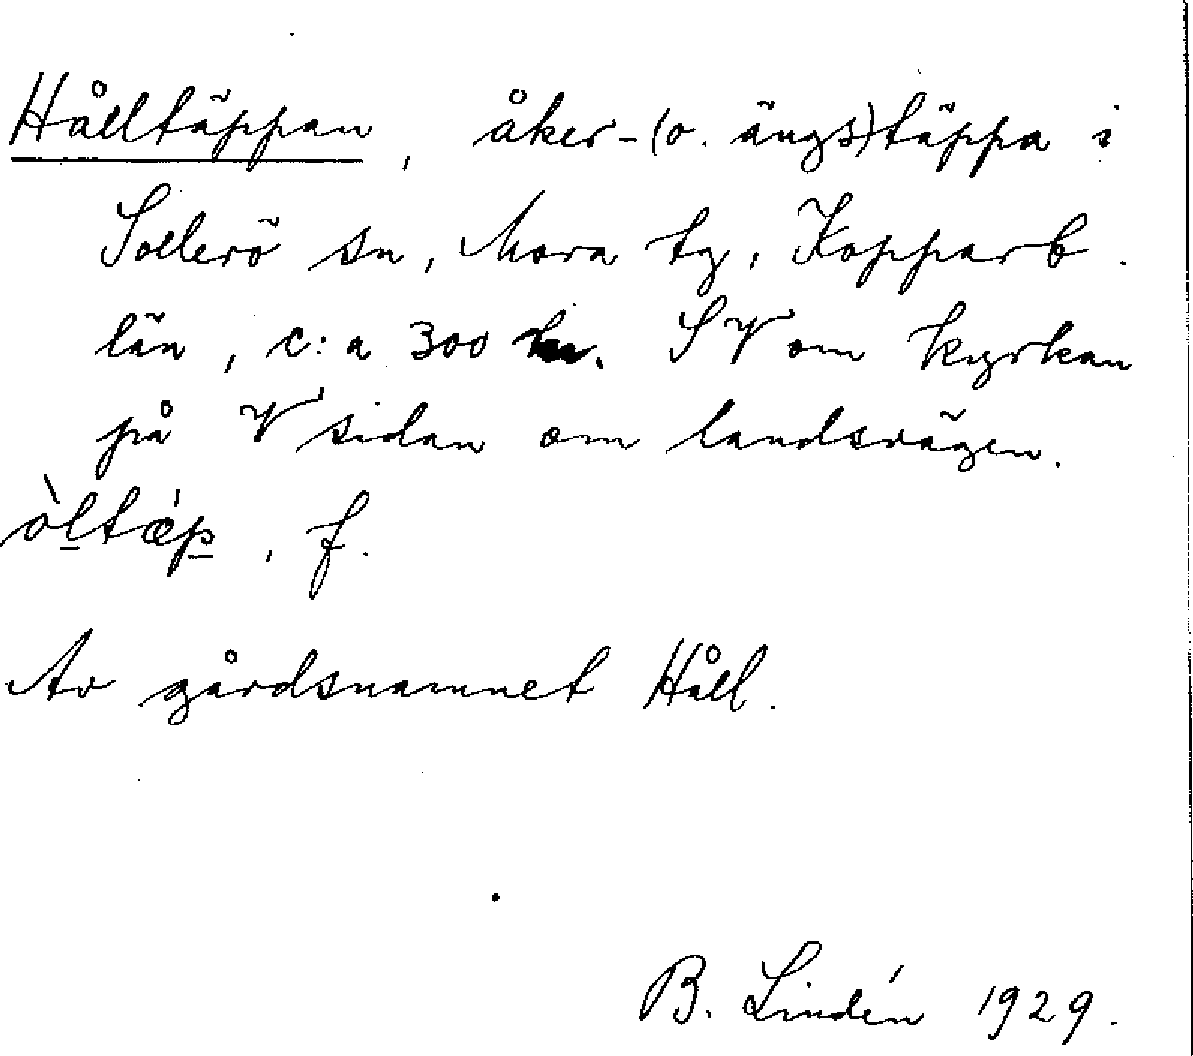 Hålltäppan, åker-(o. ängs)täppa i
Sollerö sn, Mora tg, Kopparb.
län, c:a 300 m. SV om kyrkan
på V sidan om landsvägen.
òltǽp, f.
Av gårdsnamnet Håll.
B. Lindén 1929.